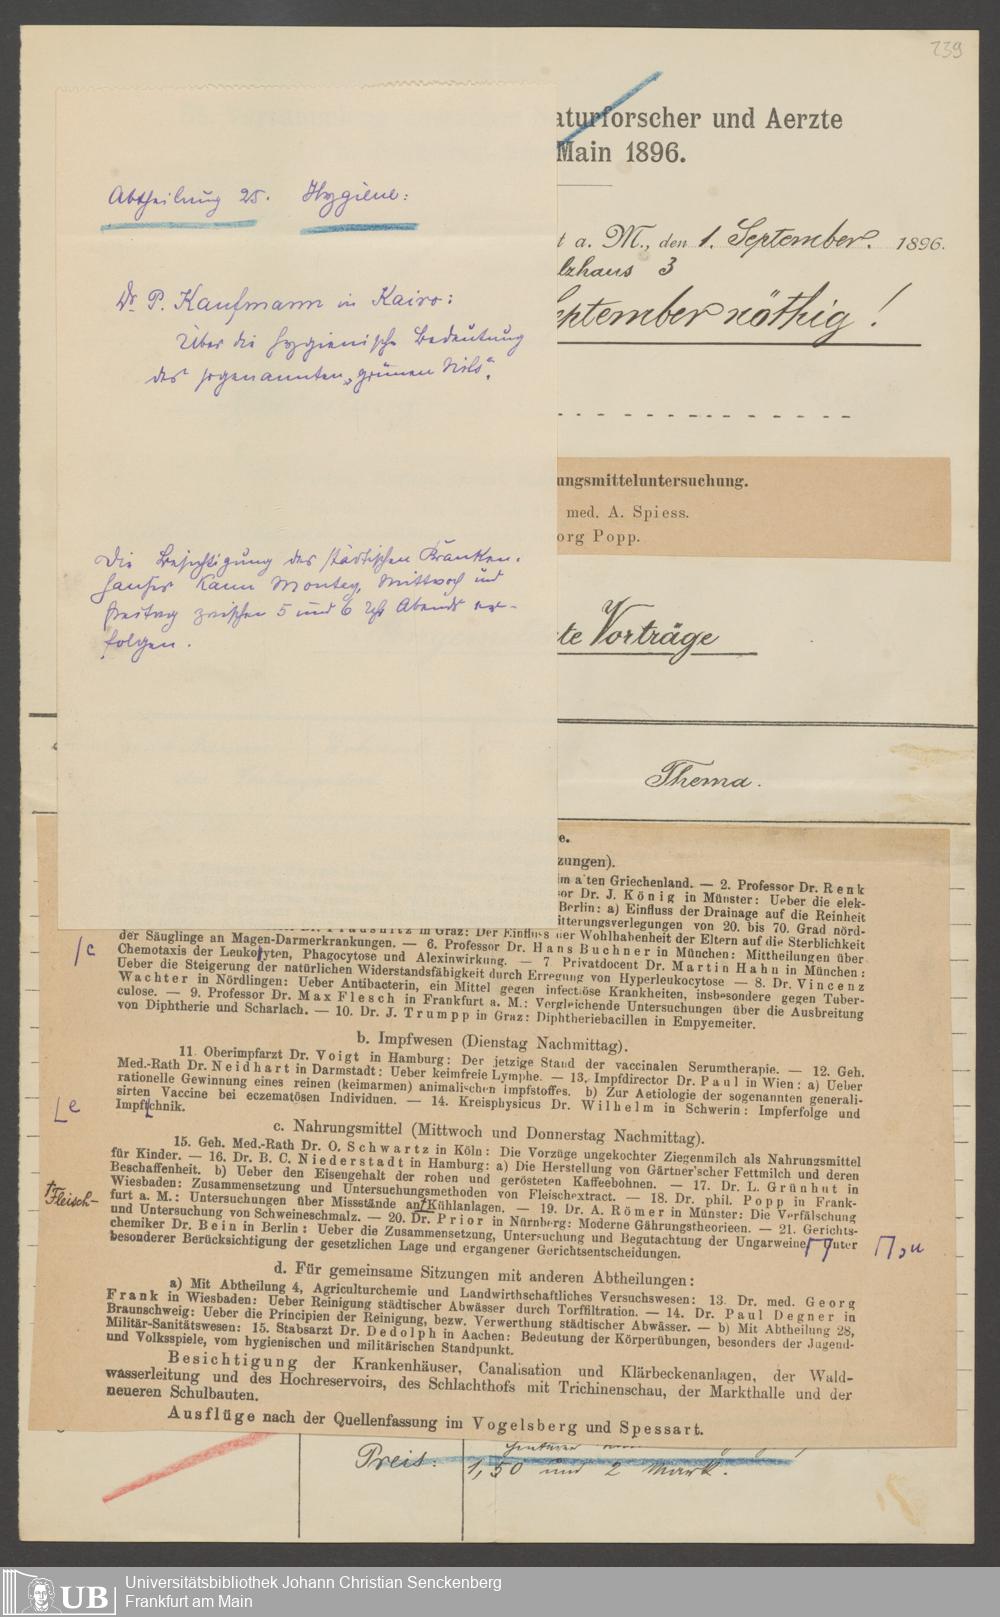 239
aturforscher und Aerzte
Main 1896.
Abtheilung 25. Hygiene:
t a. M., den 1. September. 1896.
lzhaus 3
September nöthig!
Dr. P. Kaufmann in Kairo:
Über die hygienische Bedeutung
des sogenannten „grünen Nils“.
ungsmitteluntersuchung.
med. A. Spiess.
org Popp.
Die Besichtigung des städtischen Kranken-
hauses kann Montag, Mittwoch und
Freitag zwischen 5 und 6 Uhr Abends er-
folgen.
te Vorträge
Thema.
e.
zungen).
im alten Griechenland. — 2. Professor Dr. Renk
or Dr. J. König in Münster: Ueber die elek-
Berlin: a) Einfluss der Drainage auf die Reinheit
itterungsverlegungen von 20. bis 70. Grad nörd-
Prausnitz in Graz: Der Einfluss der Wohlhabenheit der Eltern auf die Sterblichkeit
der Säuglinge an Magen-Darmerkrankungen. — 6. Professor Dr. Hans Buchner in München: Mittheilungen über
Chemotaxis der Leukotyten, Phagocytose und Alexinwirkung. — 7 Privatdocent Dr. Martin Hahn in München:
Ueber die Steigerung der natürlichen Widerstandsfähigkeit durch Erregung von Hyperleukocytose — 8. Dr. Vincenz
Wachter in Nördlingen: Ueber Antibacterin, ein Mittel gegen infectiöse Krankheiten, insbesondere gegen Tuber-
culose. — 9. Professor Dr. Max Flesch in Frankfurt a. M.: Vergleichende Untersuchungen über die Ausbreitung
von Diphtherie und Scharlach. — 10. Dr. J. Trumpp in Graz: Diphtheriebacillen in Empyemeiter.
/c
b. Impfwesen (Dienstag Nachmittag).
11. Oberimpfarzt Dr. Voigt in Hamburg: Der jetzige Stand der vaccinalen Serumtherapie. — 12. Geh.
Med.-Rath Dr. Neidhart in Darmstadt: Ueber keimfreie Lymphe. — 13. Impfdirector Dr. Paul in Wien: a) Ueber
rationelle Gewinnung eines reinen (keimarmen) animalischen Impfstoffes. b) Zur Aetiologie der sogenannten generali-
sirten Vaccine bei eczematösen Individuen. — 14. Kreisphysicus Dr. Wilhelm in Schwerin: Impferfolge und
Impftchnik.
e
c. Nahrungsmittel (Mittwoch und Donnerstag Nachmittag).
15. Geh. Med.-Rath Dr. O. Schwartz in Köln: Die Vorzüge ungekochter Ziegenmilch als Nahrungsmittel
für Kinder. — 16. Dr. B. C. Niederstadt in Hamburg: a) Die Herstellung von Gärtner'scher Fettmilch und deren
Beschaffenheit. b) Ueber den Eisengehalt der rohen und gerösteten Kaffeebohnen. — 17. Dr. L. Grünhut in
Wiesbaden: Zusammensetzung und Untersuchungsmethoden von Fleischextract. — 18. Dr. phil. Popp in Frank-
furt a. M.: Untersuchungen über Missstände an Kühlanlagen. — 19. Dr. A. Römer in Münster: Die Verfälschung
und Untersuchung von Schweineschmalz. — 20. Dr. Prior in Nürnberg: Moderne Gährungstheorieen. — 21. Gerichts-
chemiker Dr. Bein in Berlin: Ueber die Zusammensetzung, Untersuchung und Begutachtung der Ungarweine unter
besonderer Berücksichtigung der gesetzlichen Lage und ergangener Gerichtsentscheidungen.
Fleisch-
d. Für gemeinsame Sitzungen mit anderen Abtheilungen:
a) Mit Abtheilung 4, Agriculturchemie und Landwirthschaftliches Versuchswesen: 13. Dr. med. Georg
Frank in Wiesbaden: Ueber Reinigung städtischer Abwässer durch Torffiltration. — 14. Dr. Paul Degner in
Braunschweig: Ueber die Principien der Reinigung, bezw. Verwerthung städtischer Abwässer. — b) Mit Abtheilung 28,
Militär-Sanitätswesen: 15. Stabsarzt Dr. Dedolph in Aachen: Bedeutung der Körperübungen, besonders der Jugend-
und Volksspiele, vom hygienischen und militärischen Standpunkt.
Besichtigung der Krankenhäuser, Canalisation und Klärbeckenanlagen, der Wald-
wasserleitung und des Hochreservoirs, des Schlachthofs mit Trichinenschau, der Markthalle und der
neueren Schulbauten.
Ausflüge nach der Quellenfassung im Vogelsberg und Spessart.
Preis: 1,50 und 2 Mark.
UB
Universitätsbibliothek Johann Christian Senckenberg
Frankfurt am Main